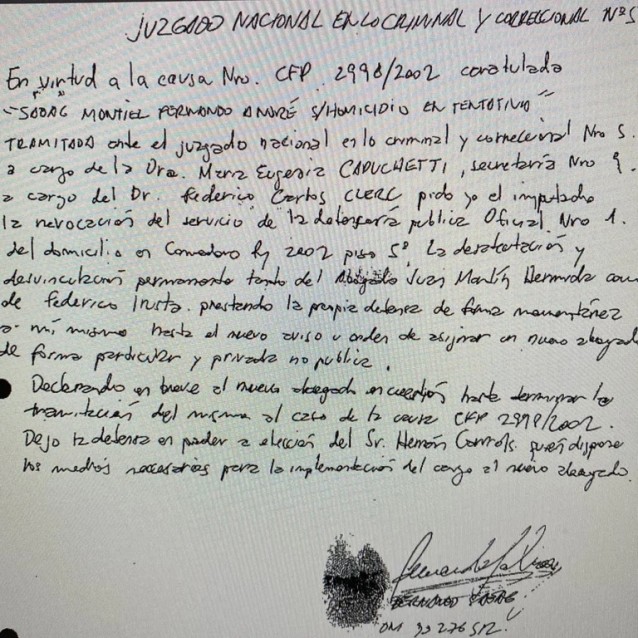 JUZGADO NACIONAL EN LO CRIMINAL Y CORRECCIONAL Nº5
En virtud a la causa Nro. CFP 2998/2002 caratulada
"SABAG MONTIEL FERNANDO ANDRÉ S/HOMICIDIO EN TENTATIVA"
TRAMITADA ante el juzgado nacional en lo criminal y correccional Nro 5.
a cargo de la Dra. Maria Eugenia CAPUCHETTI, secretaría Nro 9.
a cargo del Dr. Federico Carlos CLERC pido yo el imputado
la revocación del servicio de la defensoría publica Oficial Nro 1.
del domicilio en Comodoro Py 2002 piso 5º. La desafectación y
desvinculación permanente tanto del Abogado Juan Martín Hermida como
de Federico prestando la propia defensa de forma momentánea
a mí mismo hasta el nuevo aviso u orden de asignar un nuevo abogado
de forma particular y privada no publica.
Declarando en breve al nuevo abogado en cuestión hasta terminar la
tramitación del mismo al caso de la causa CFP 2998/2002.
Dejo la defensa en poder a elección del Sr. Hernán quién dispone
los medios necesarios para la implementación del cargo al nuevo abogado.
FERNANDO SABAG